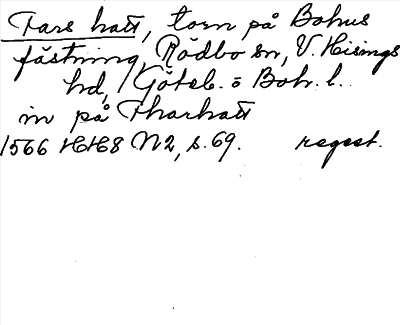 Fars hatt, torn på Bohus
fästning, Rödbo sn, V. Hisings
hd, Göteb. o Boh. l.
in på Fharhatt
1566 HH8 N2, s. 69. regest.